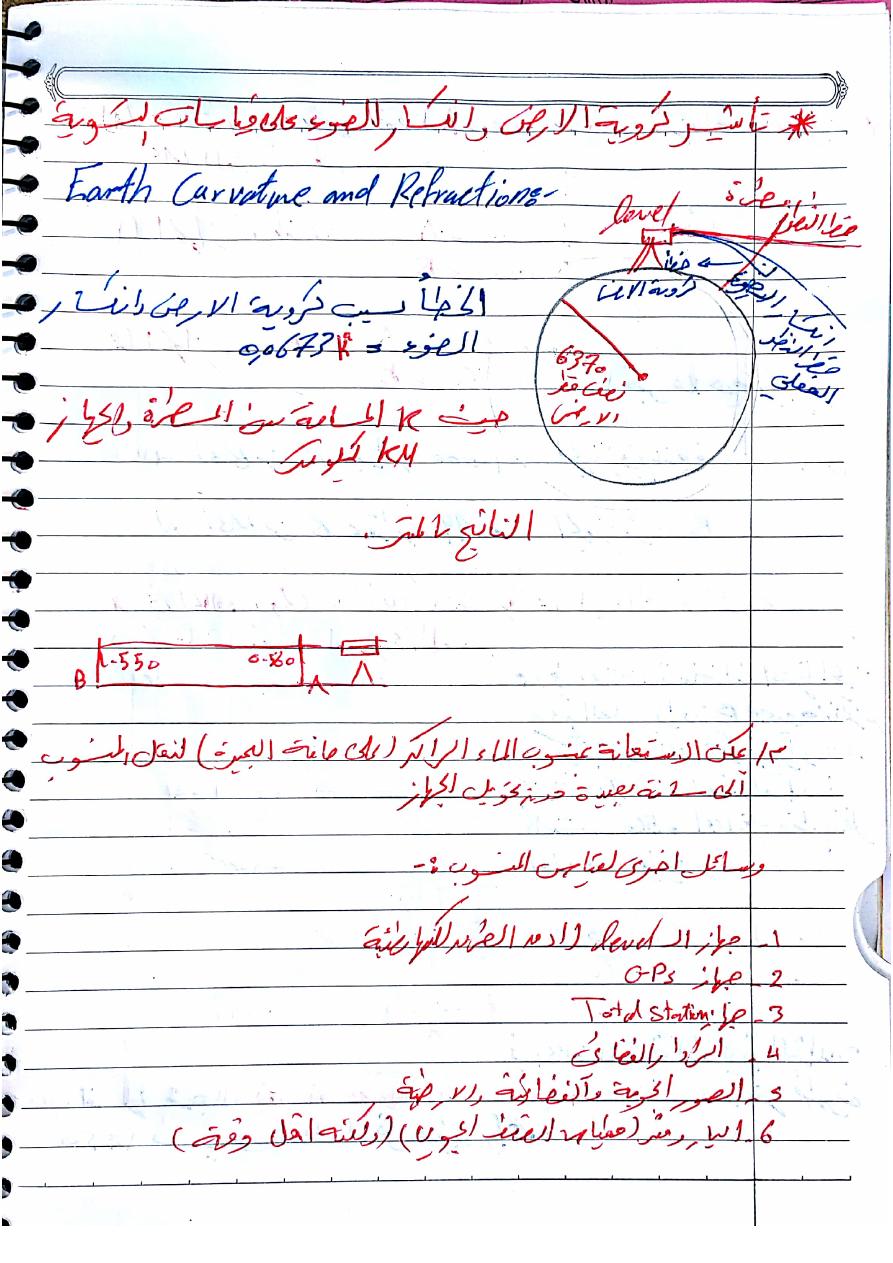 * تأثير كروية الارض وانكسار الضوء على قياسات التسوية
Earth Curvature and Refractions:-
level
مسطرة
خط النظر
خطأ
كروية الارض
انكسار الضوء
خط النظر
الفعلي
6370
نصف قطر
الارض
الخطأ بسبب كروية الارض وانكسار
الضوء = 0,0673 K²
حيث K المسافة بين المسطرة والجهاز
KM كيلومتر
الناتج بالمتر.
B 1.550 0.560 A
م/ يمكن الاستعانة بمنسوب الماء الراكد (على حافة البحيرة) لنقل المنسوب
الى مسافة بعيدة دون تحويل الجهاز
وسائل اخرى لقياس المنسوب :-
1- جهاز الـ level
2- جهاز GPs
3- جهاز Total Station
4- الرادار الفضائي
5- الصور الجوية والفضائية والارضية
6- البارومتر (مقياس الضغط الجوي) (ولكنه اقل دقة)